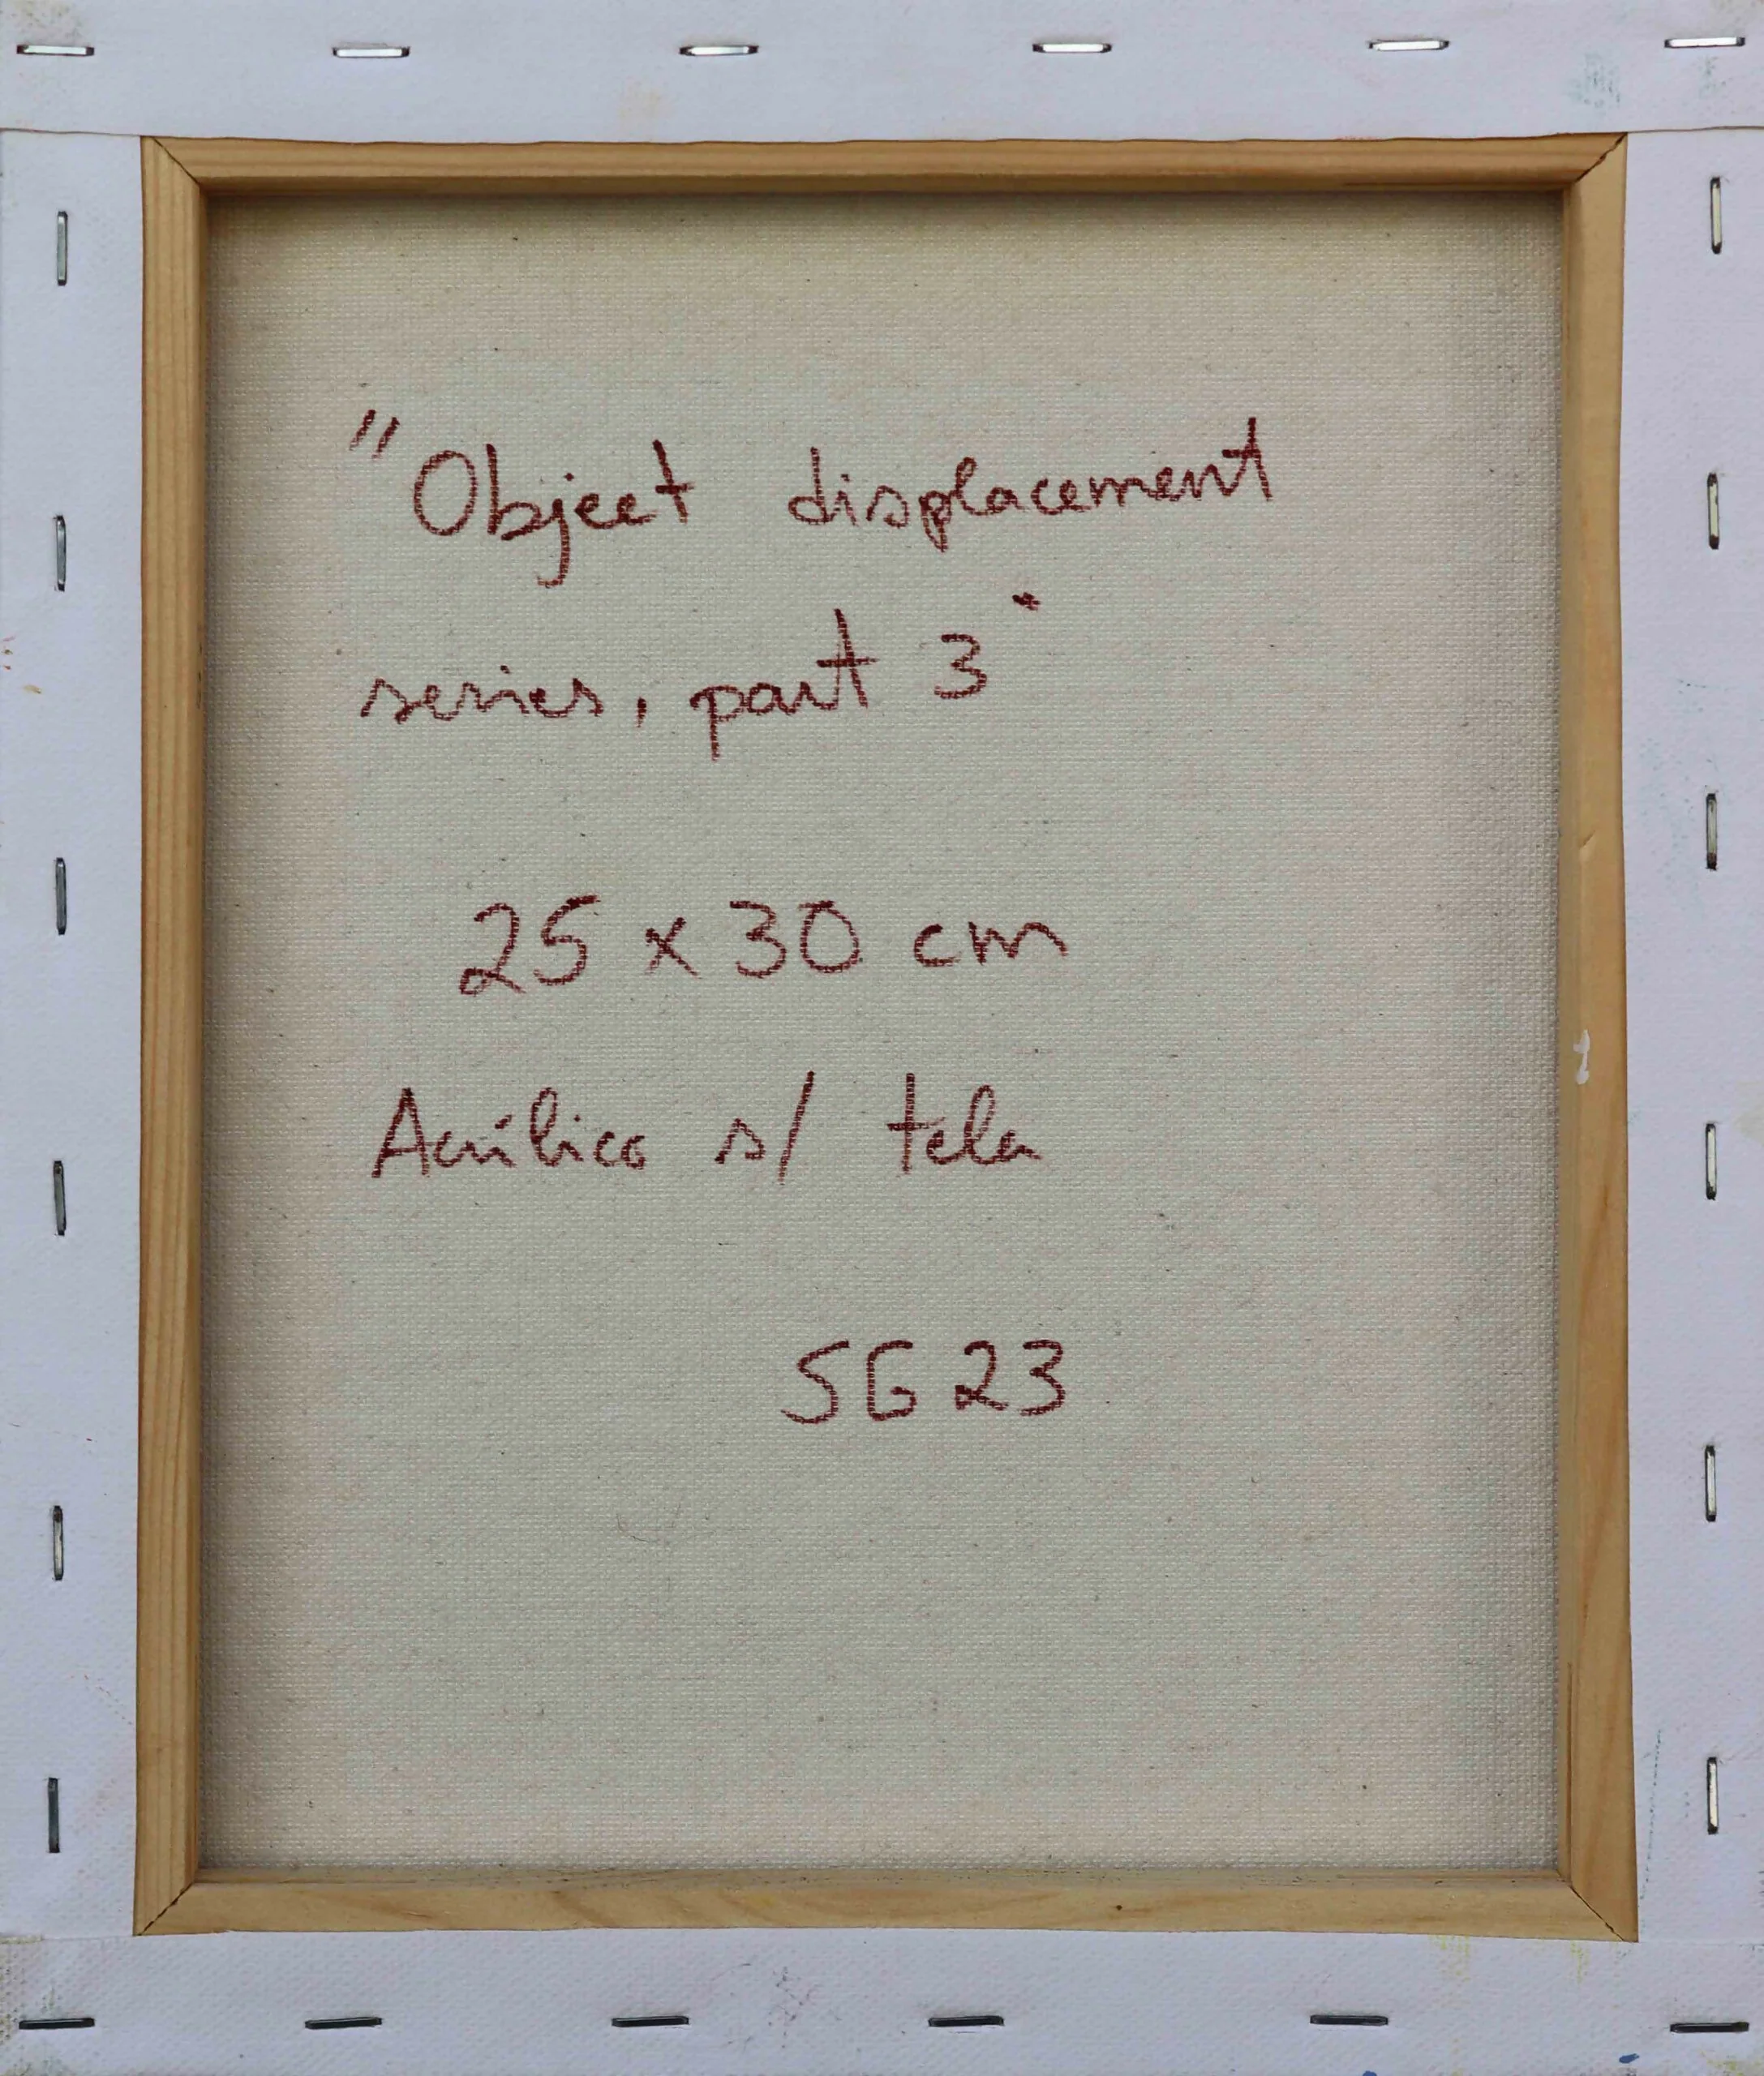 "Object displacement
series, part 3"
25 x 30 cm
Acrílico s/ tela
SG 23